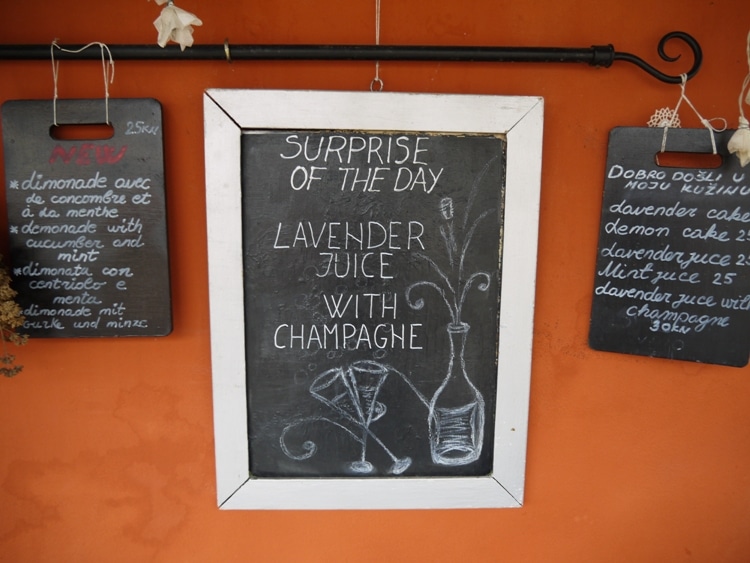 25KN
NEW
*limonade avec
de concombre et
à la menthe
*lemonade with
cucumber and
mint
*limonata con
centriolo e
menta
*limonade mit
Gurke und minze
SURPRISE
OF THE DAY
LAVENDER
JUICE
WITH
CHAMPAGNE
DOBRO DOŠLI U
MOJU KUŽINU
lavender cake
Lemon cake 25
lavender juce 25
Mint juce 25
lavender juce with
champagne
30KN